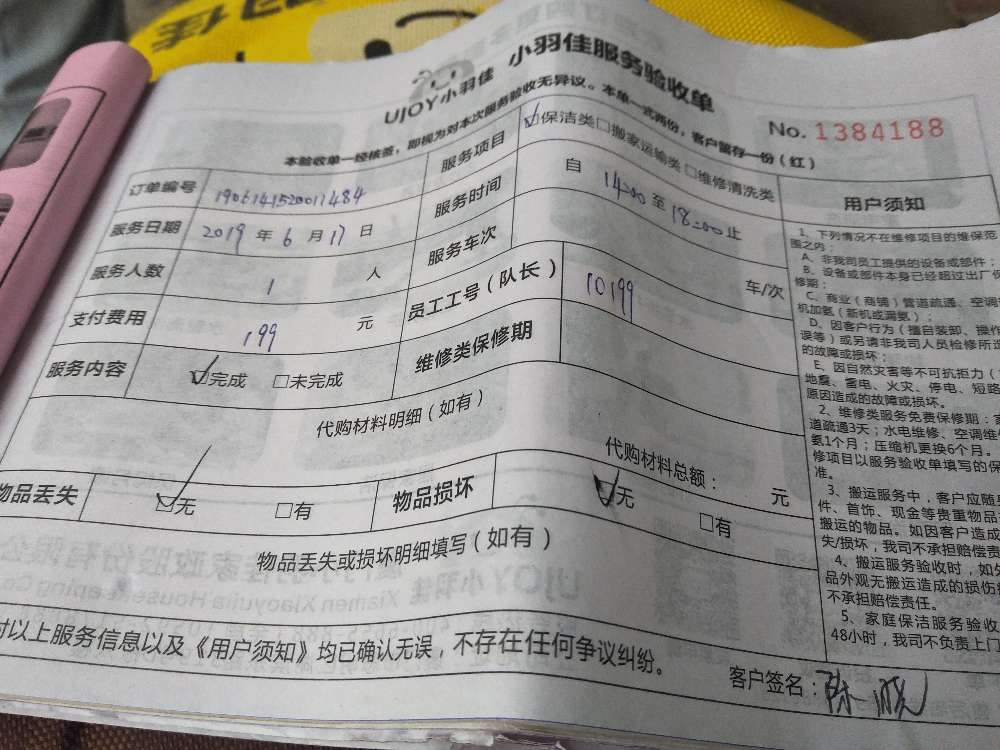 UJOY小羽佳 小羽佳服务验收单
No. 1384188
本验收单一经核签，即视为对本次服务验收无异议。本单一式两份，客户留存一份（红）
订单编号 190614152001484 服务项目 ☑保洁类□搬家运输类□维修清洗类
服务日期 2019 年 6 月 17 日 服务时间 自 14:00 至 18:00 止
服务人数 1 人 服务车次 车/次
支付费用 199 元 员工工号（队长） 10199
服务内容 ☑完成 □未完成 维修类保修期
代购材料明细（如有）
代购材料总额： 元
物品丢失 ☑无 □有 物品损坏 ☑无 □有
物品丢失或损坏明细填写（如有）
对以上服务信息以及《用户须知》均已确认无误，不存在任何争议纠纷。
客户签名：陈
用户须知
1、下列情况不在维修项目的维保范
围之内：
A、非我司员工提供的设备或部件；
B、设备或部件本身已经超过出厂
修期；
C、商业（商铺）管道疏通、空调
机加氨（新机或漏氨）；
D、因客户行为（擅自装卸、操作
误等）或另请非我司人员检修所造
的故障或损坏；
E、因自然灾害等不可抗拒力（
地震、雷电、火灾、停电、短路
原因造成的故障或损坏。
2、维修类服务免费保修期：
道疏通3天；水电维修、空调维
氨1个月；压缩机更换6个月。
修项目以服务验收单填写的保
准。
3、搬运服务中，客户应随
件、首饰、现金等贵重物品
搬运的物品。如因客户造成
失/损坏，我司不承担赔偿责
4、搬运服务验收时，如
品外观无搬运造成的损伤
不承担赔偿责任。
5、家庭保洁服务验收
48小时，我司不负责上门